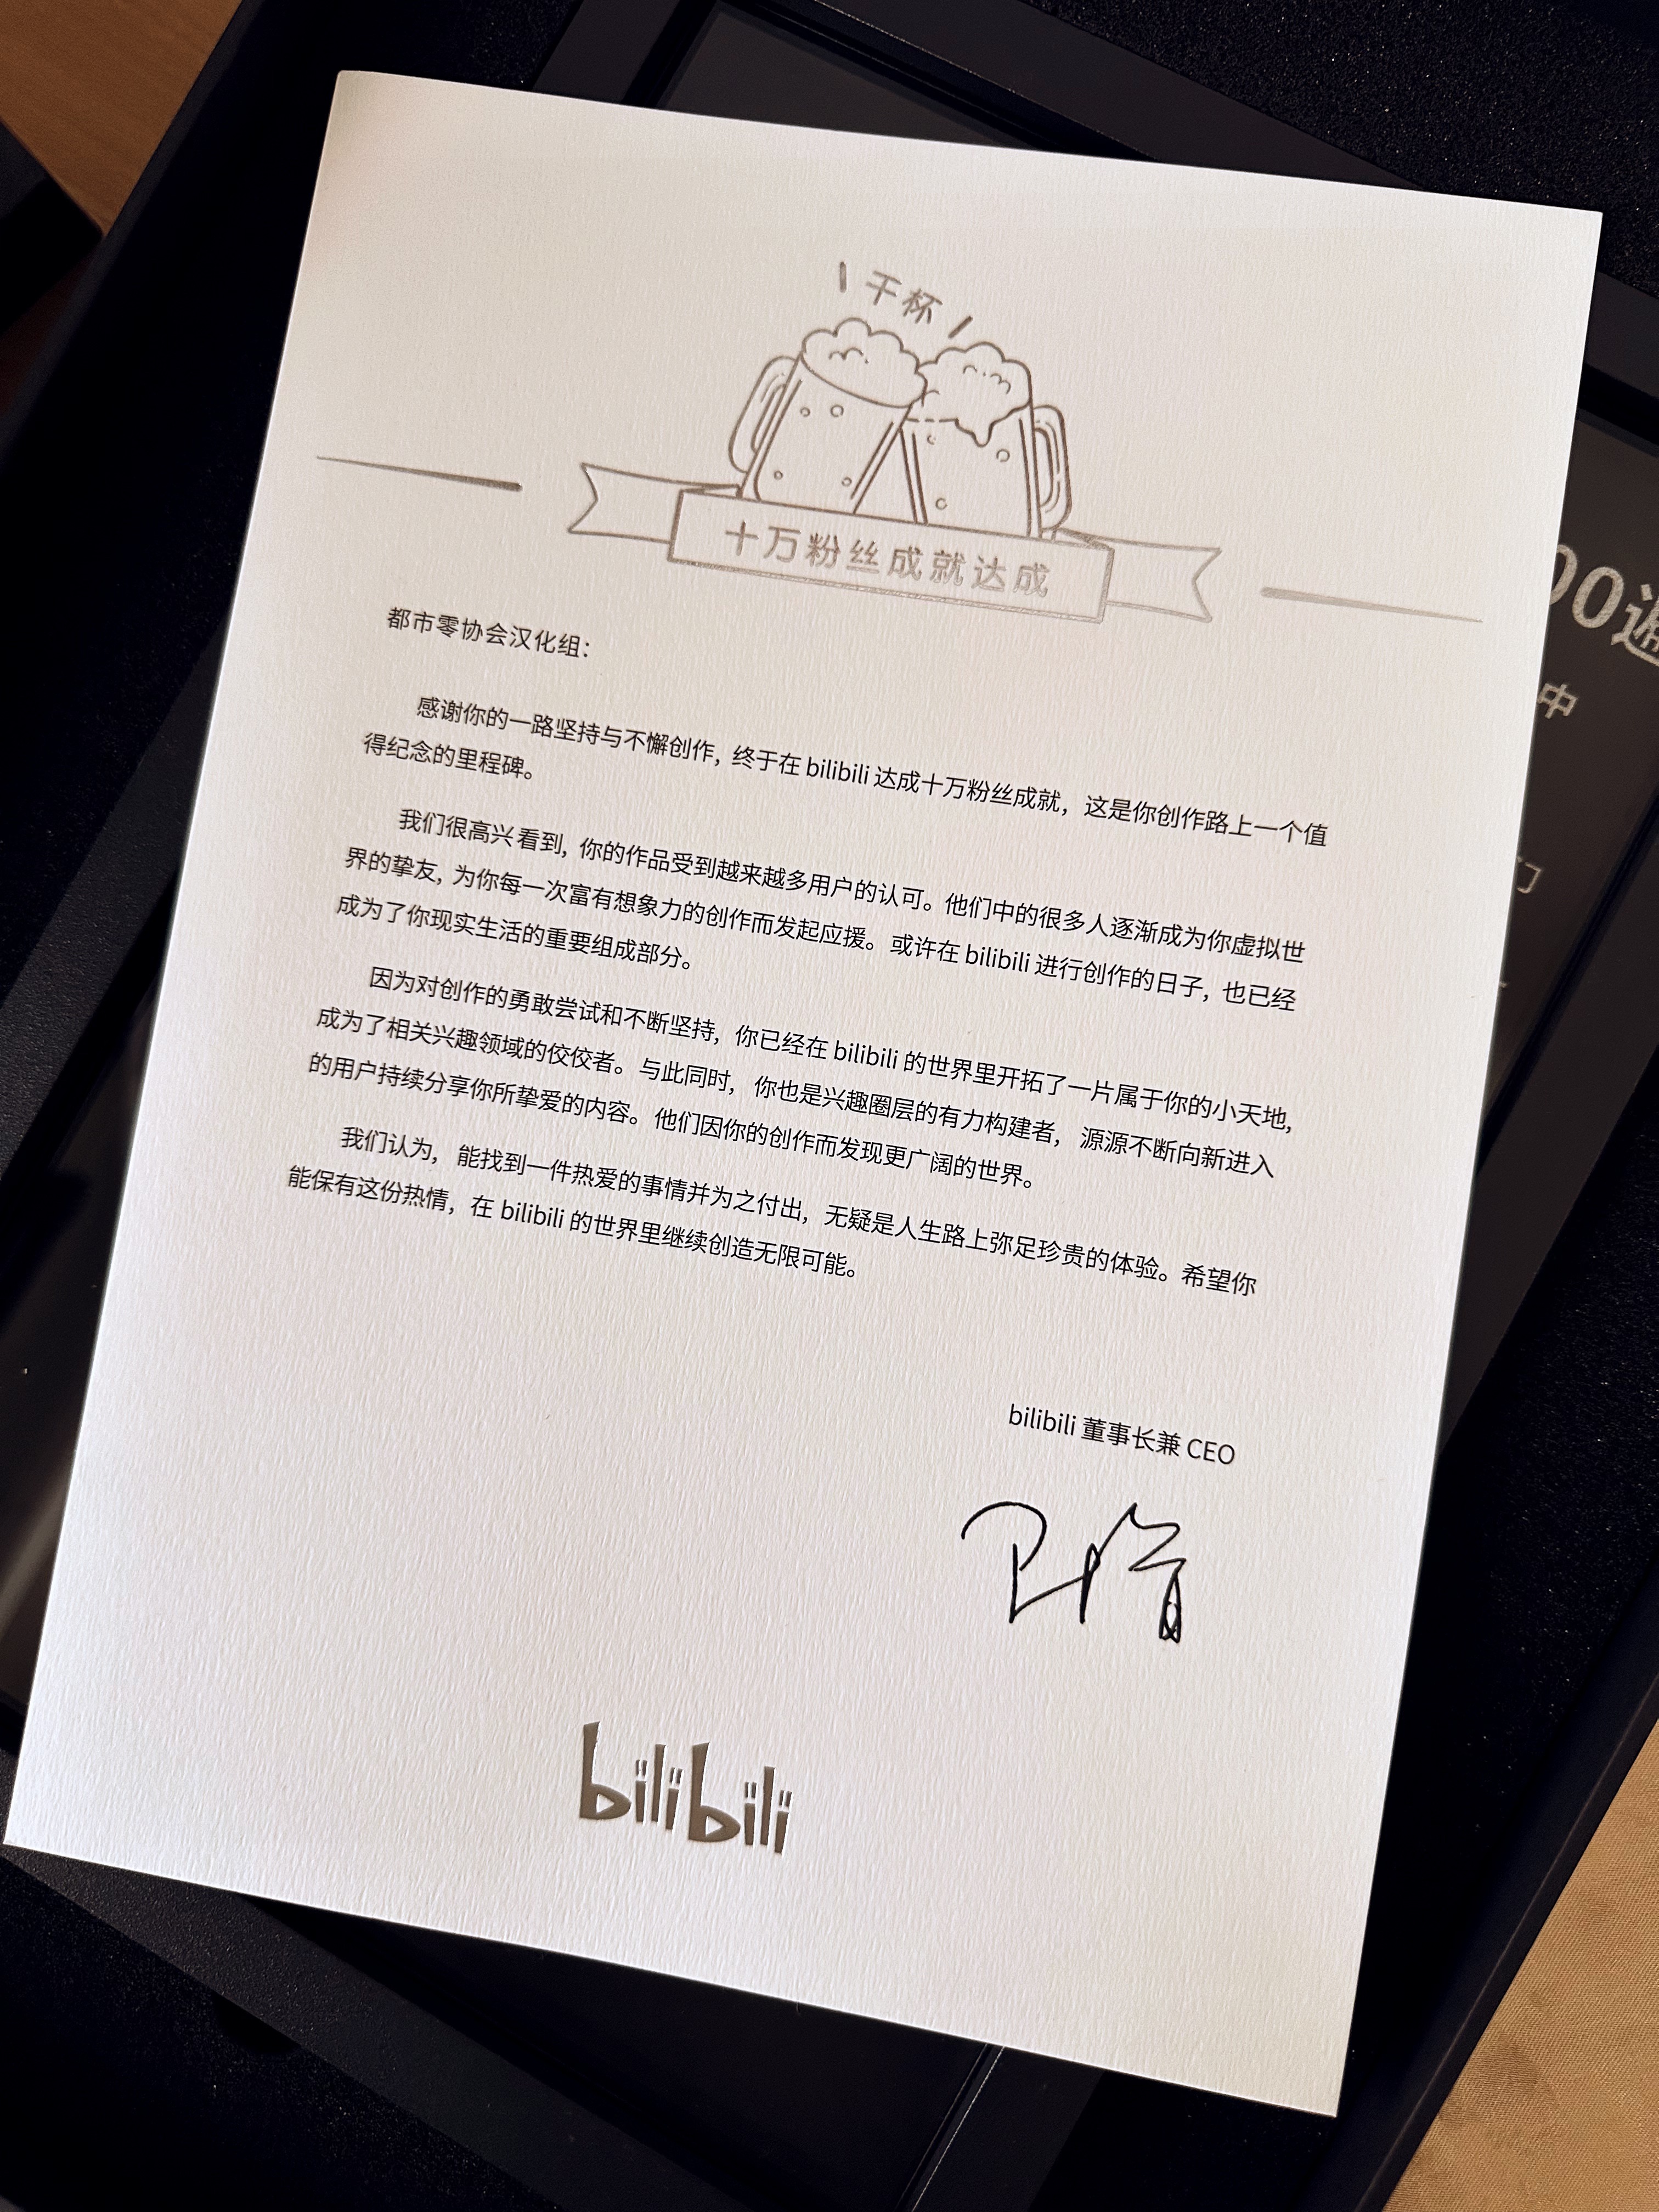 干杯
十万粉丝成就达成
都市零协会汉化组：
感谢你的一路坚持与不懈创作，终于在 bilibili 达成十万粉丝成就，这是你创作路上一个值
得纪念的里程碑。
我们很高兴看到，你的作品受到越来越多用户的认可。他们中的很多人逐渐成为你虚拟世
界的挚友，为你每一次富有想象力的创作而发起应援。或许在 bilibili 进行创作的日子，也已经
成为了你现实生活的重要组成部分。
因为对创作的勇敢尝试和不断坚持，你已经在 bilibili 的世界里开拓了一片属于你的小天地，
成为了相关兴趣领域的佼佼者。与此同时，你也是兴趣圈层的有力构建者，源源不断向新进入
的用户持续分享你所挚爱的内容。他们因你的创作而发现更广阔的世界。
我们认为，能找到一件热爱的事情并为之付出，无疑是人生路上弥足珍贵的体验。希望你
能保有这份热情，在 bilibili 的世界里继续创造无限可能。
bilibili 董事长兼 CEO
bilibili
00
中